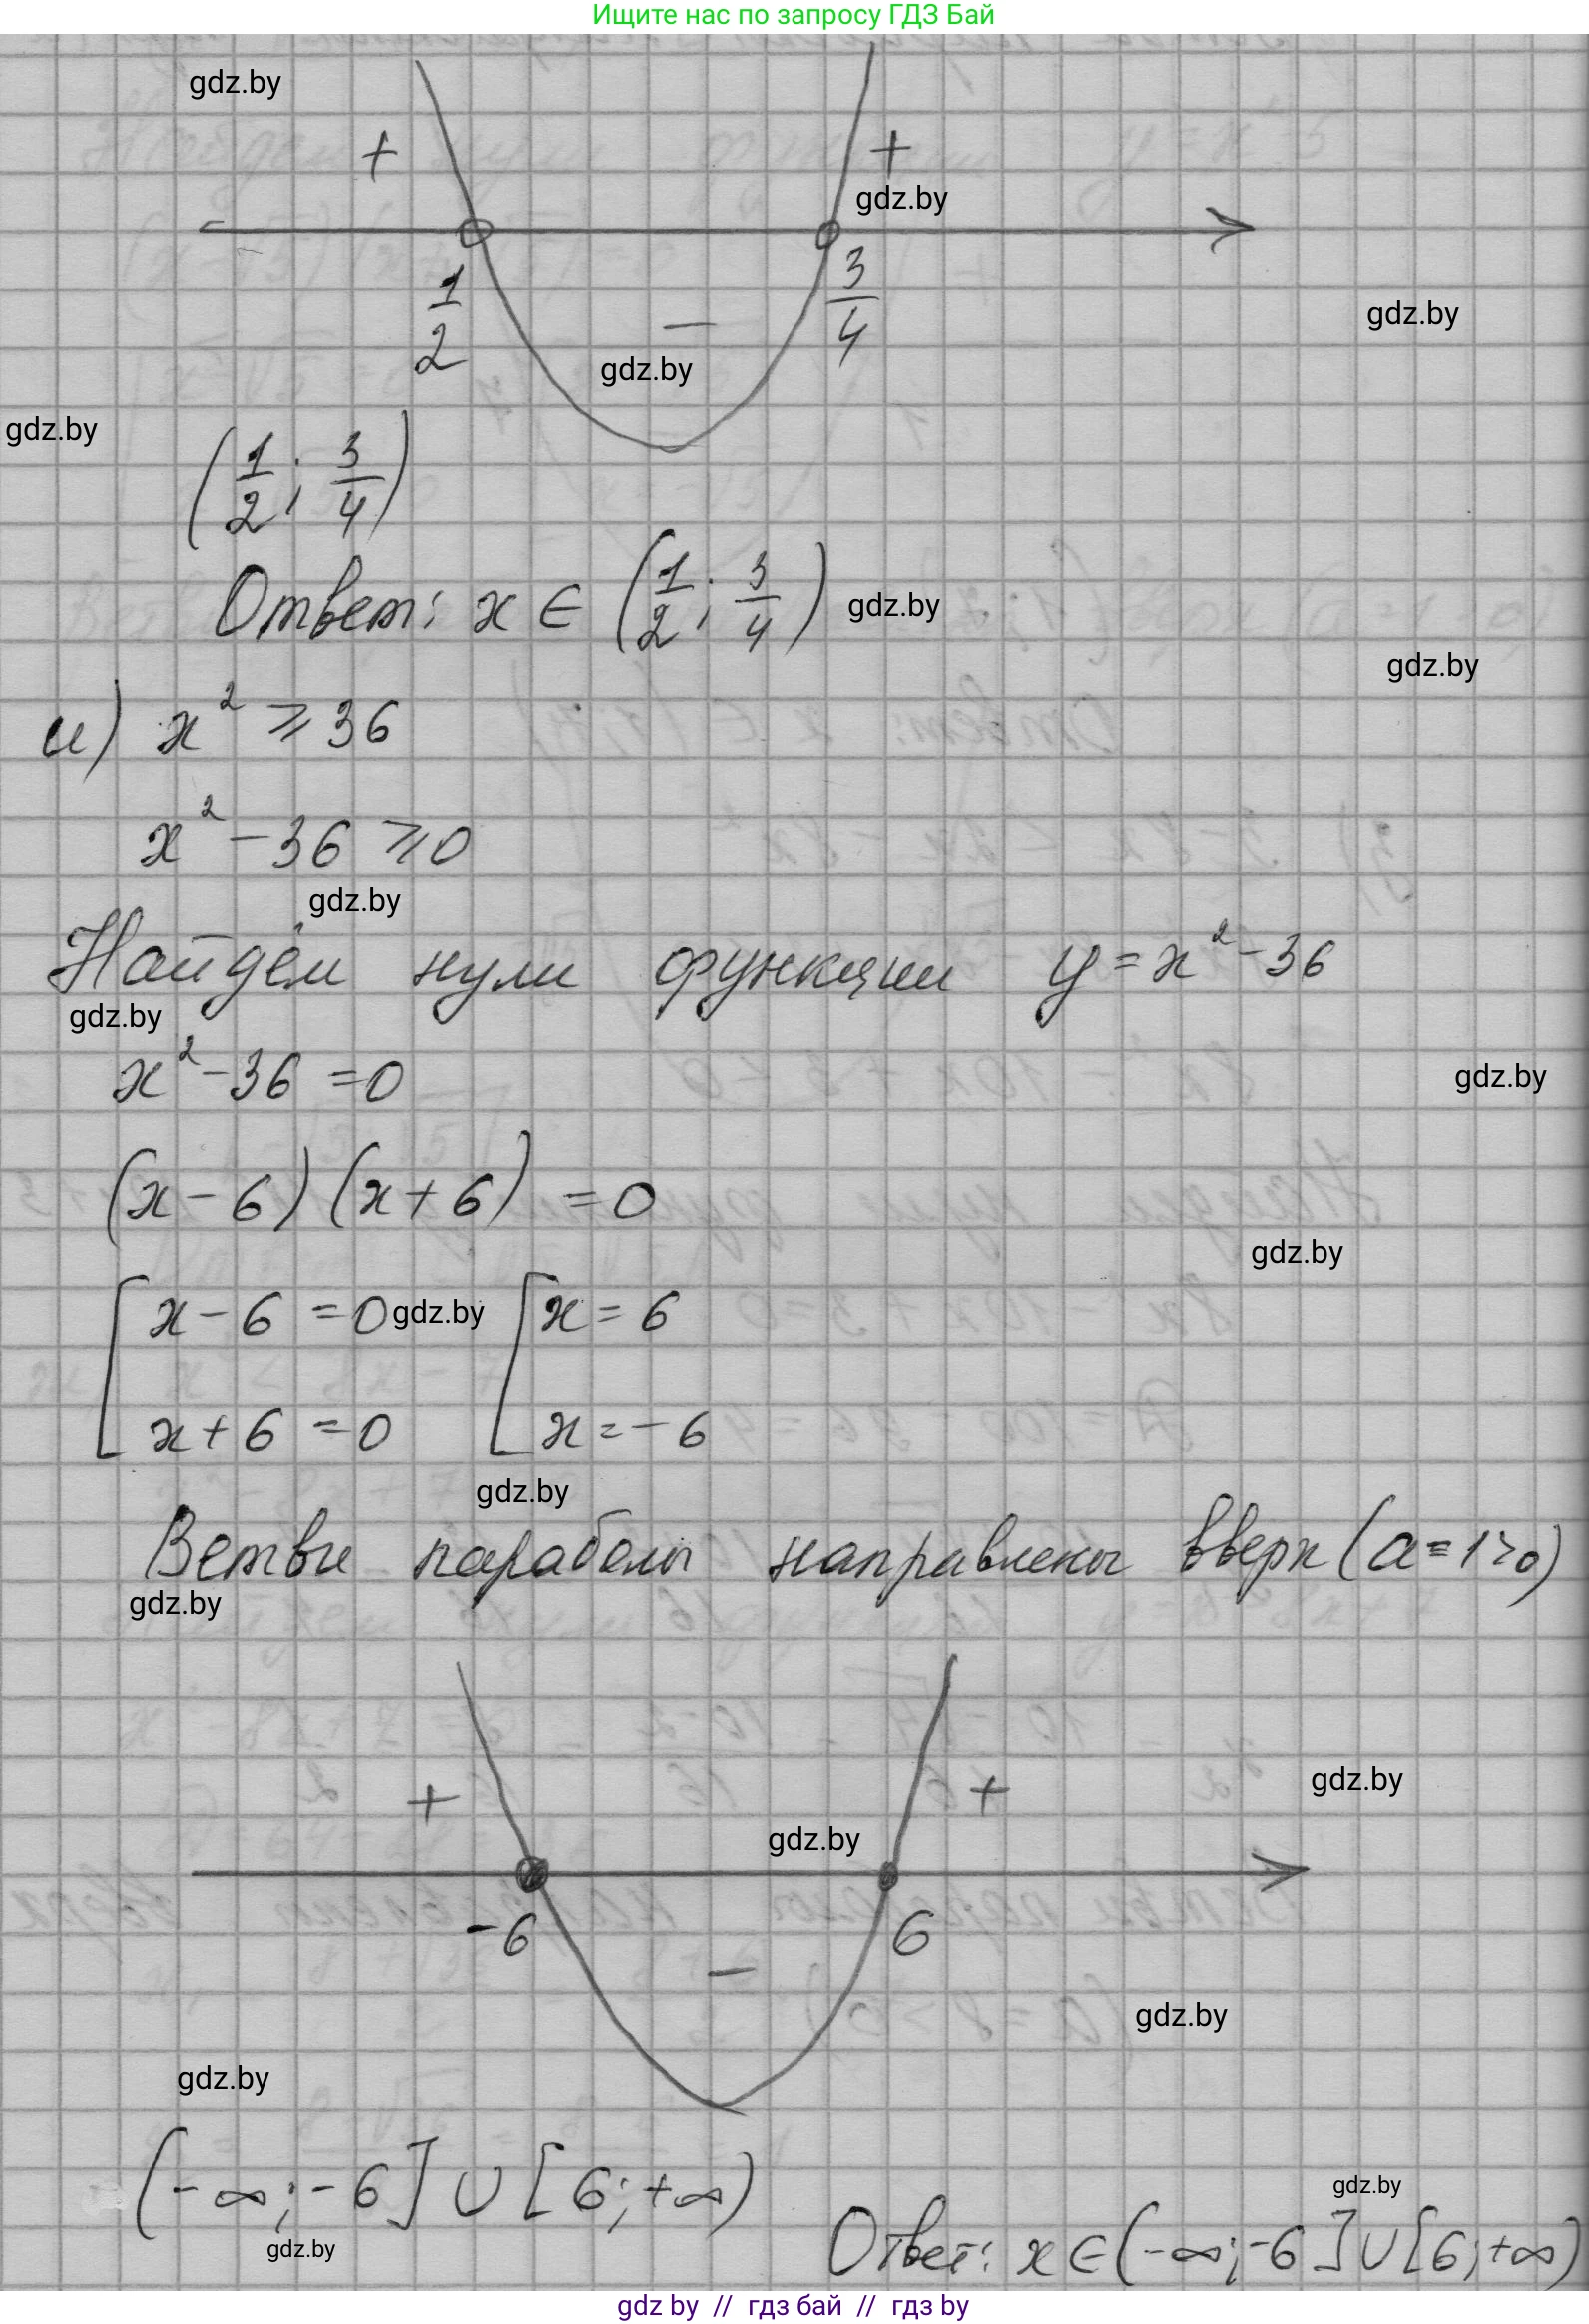 Ищите нас по запросу ГДЗ Бай
gdz.by
+ +
gdz.by
1/2 3/4
gdz.by
−
gdz.by
gdz.by
(1/2; 3/4)
Ответ: x ∈ (1/2; 3/4)
gdz.by
gdz.by
и) x² ⩾ 36
x² − 36 ⩾ 0
gdz.by
Найдём нули функции y = x² − 36
gdz.by
x² − 36 = 0
gdz.by
(x − 6)(x + 6) = 0
gdz.by
[x − 6 = 0 gdz.by [x = 6
x + 6 = 0 x = −6
gdz.by
Ветви параболы направлены вверх (a = 1 > 0)
gdz.by
+ +
gdz.by
gdz.by
−6 6
−
gdz.by
gdz.by
(−∞; −6] ∪ [6; +∞)
gdz.by
gdz.by
Ответ: x ∈ (−∞; −6] ∪ [6; +∞)
gdz by // гдз бай // гдз by